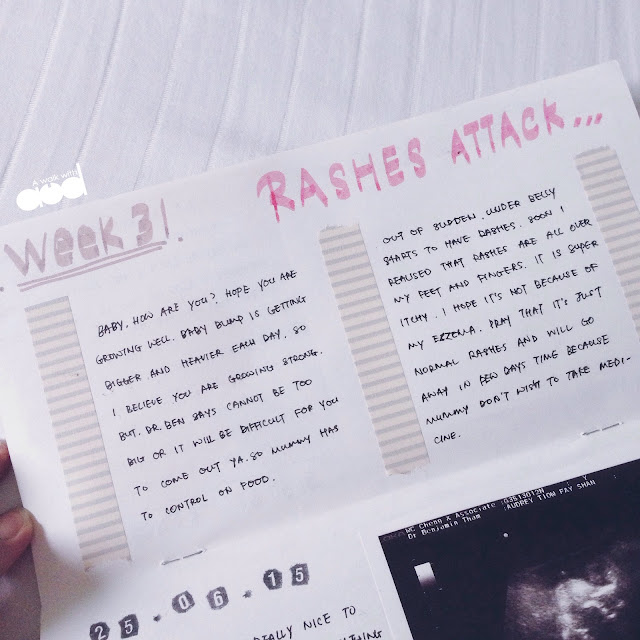 A walk with aud
Week 31.
BABY, HOW ARE YOU? HOPE YOU ARE
GROWING WELL. BABY BUMP IS GETTING
BIGGER AND HEAVIER EACH DAY. SO
I BELIEVE YOU ARE GROWING STRONG.
BUT, DR. BEN SAYS CANNOT BE TOO
BIG OR IT WILL BE DIFFICULT FOR YOU
TO COME OUT YA. SO MUMMY HAS
TO CONTROL ON FOOD.
RASHES ATTACK...
OUT OF SUDDEN, UNDER BELLY
STARTS TO HAVE RASHES. SOON I
REALISED THAT RASHES ARE ALL OVER
MY FEET AND FINGERS. IT IS SUPER
ITCHY. I HOPE IT'S NOT BECAUSE OF
MY EZZEMA. PRAY THAT IT'S JUST
NORMAL RASHES AND WILL GO
AWAY IN FEW DAYS TIME BECAUSE
MUMMY DON'T WISH TO TAKE MEDI-
CINE.
25.06.15
NICE TO
WC Cheng & Associate
Dr Benjamin Tham
AUDREY TIOM FAY SHAN